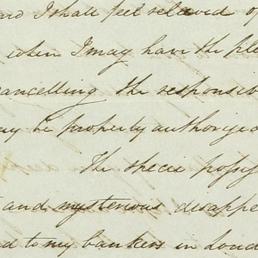 and I shall feel relieved of
when I may have the ple
cancelling the responsib
may be properly authorized
The specie
and mysterious disappe
to my bankers in Lond